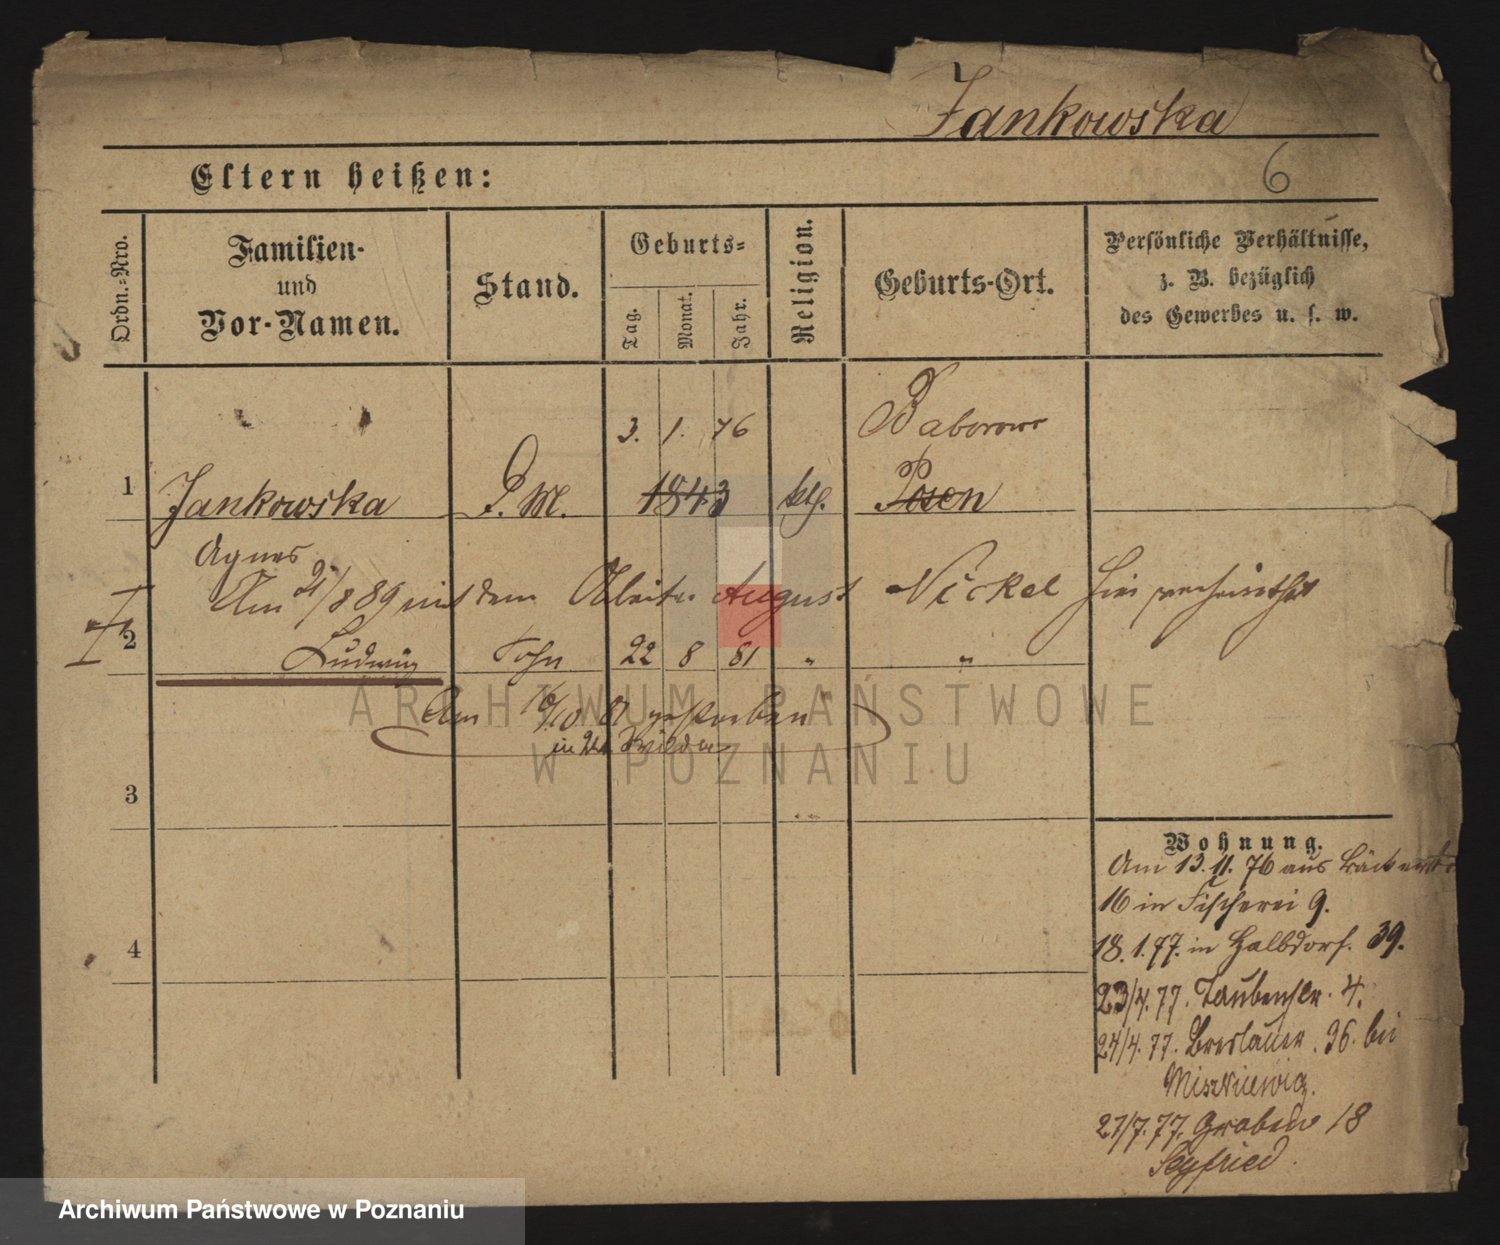 Jankowska
6
Eltern heißen:
Ordn.-Nro.
Familien-
und
Vor-Namen.
Stand.
Geburts-
Tag.
Monat.
Jahr.
Religion.
Geburts-Ort.
Persönliche Verhältnisse,
z. B. bezüglich
des Gewerbes u. s. w.
3. 1. 76 Baborowo
1 Jankowska D. M. 1843 kth. Posen
Agnes
Am 21/8 89 mit dem Arbeiter August Nickel hier verheirathet
2 Ludwig Sohn 22 8 81 " "
Am 16/10 gestorben
in Wilda
3
4
Wohnung.
Am 13. 11. 76 aus
16 in Fischerei 9.
18. 1. 77. in Halbdorf. 39.
23/4. 77. Taubenstr. 4.
24/4. 77. Breslauer. 36. bei
Miszkiewicz.
27/7. 77. Graben 18
Seyfried.
ARCHIWUM PAŃSTWOWE
W POZNANIU
Archiwum Państwowe w Poznaniu